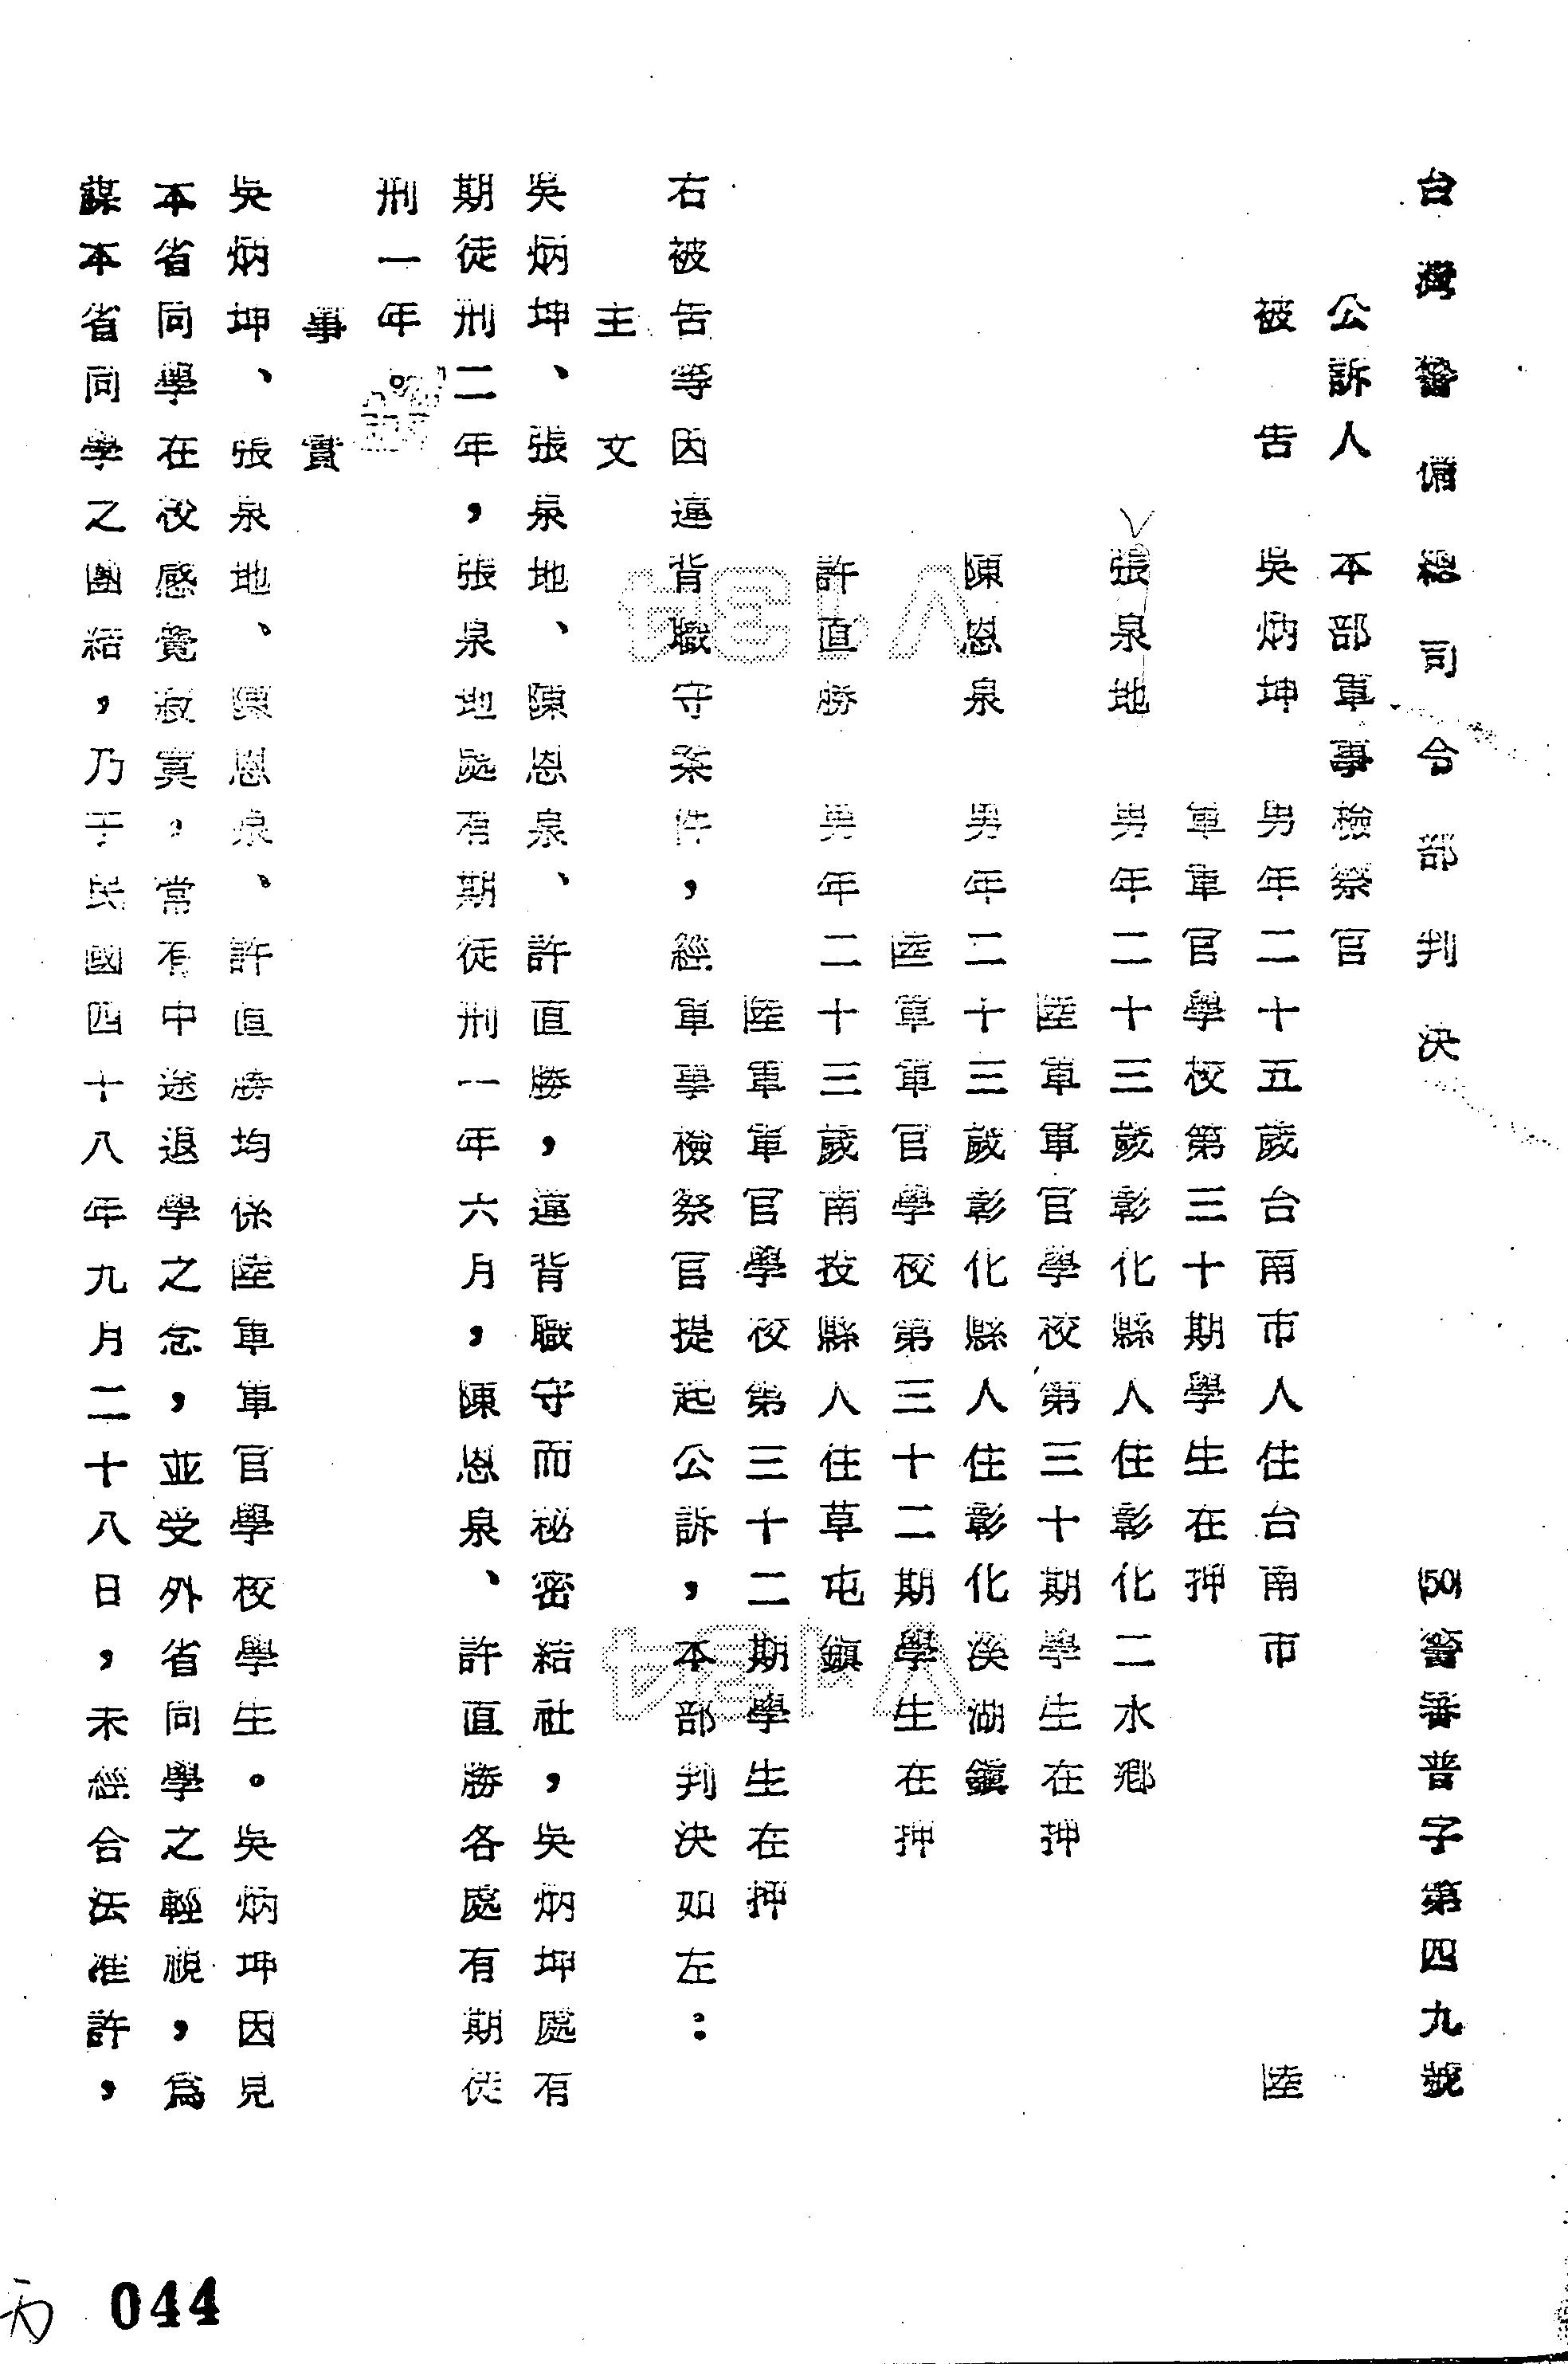 台灣警備總司令部判決 (50)警審普字第四九號
公訴人 本部軍事檢察官
被告 吳炳坤 男年二十五歲台南市人住台南市 陸
軍軍官學校第三十期學生在押
張泉地 男年二十三歲彰化縣人住彰化二水鄉
陸軍軍官學校第三十期學生在押
陳恩泉 男年二十三歲彰化縣人住彰化溪湖鎮
陸軍軍官學校第三十二期學生在押
許直勝 男年二十三歲南投縣人住草屯鎮
陸軍軍官學校第三十二期學生在押
右被告等因違背職守案件,經軍事檢察官提起公訴,本部判決如左:
主文
吳炳坤、張泉地、陳恩泉、許直勝,違背職守而秘密結社,吳炳坤處有
期徒刑二年,張泉地處有期徒刑一年六月,陳恩泉、許直勝各處有期徒
刑一年。
事實
吳炳坤、張泉地、陳恩泉、許直勝均係陸軍軍官學校學生。吳炳坤因見
本省同學在校感覺寂寞,常有中途退學之念,並受外省同學之輕視,為
謀本省同學之團結,乃于民國四十八年九月二十八日,未經合法准許,
V134
V134
044